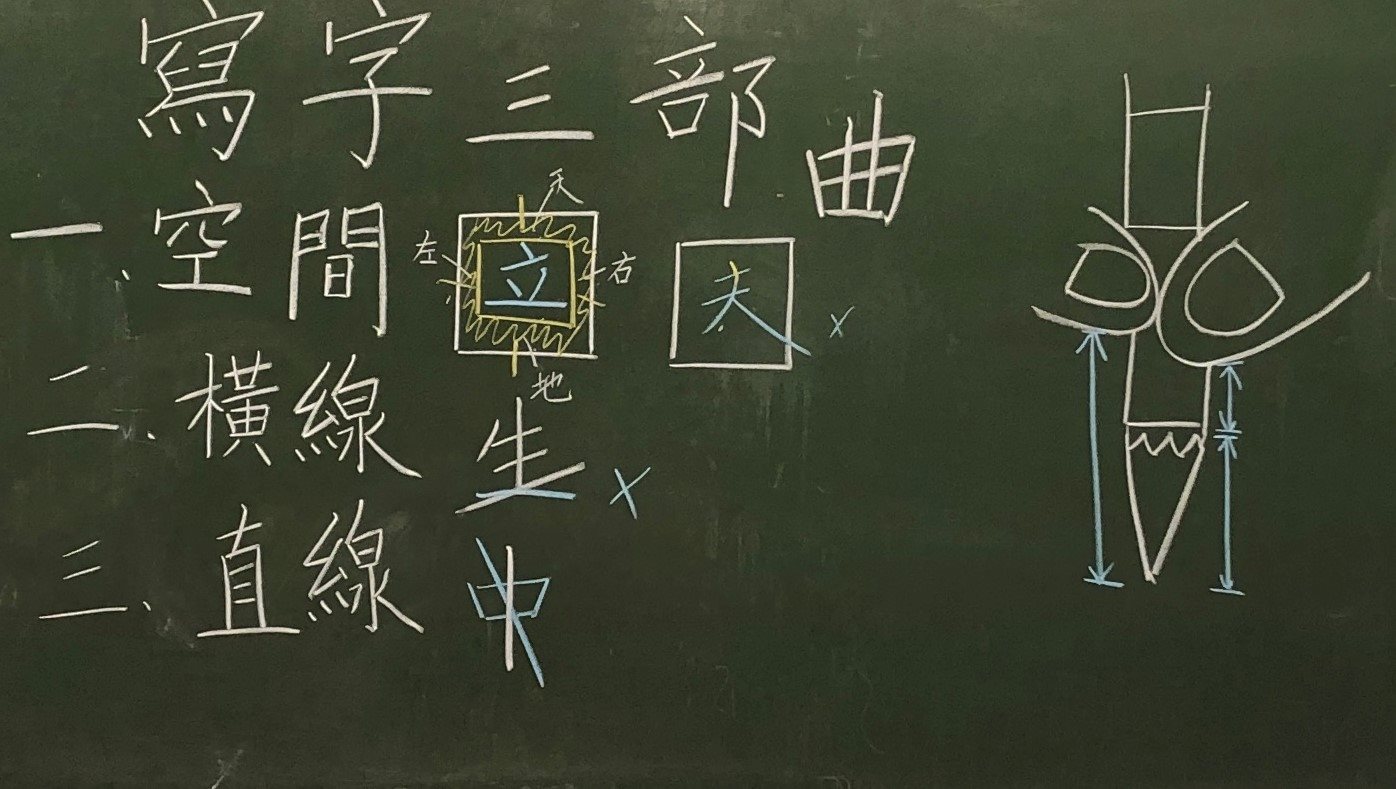 寫字三部曲
一、空間 天 左 立 右 地 夫 x
二、橫線 生 x
三、直線 中